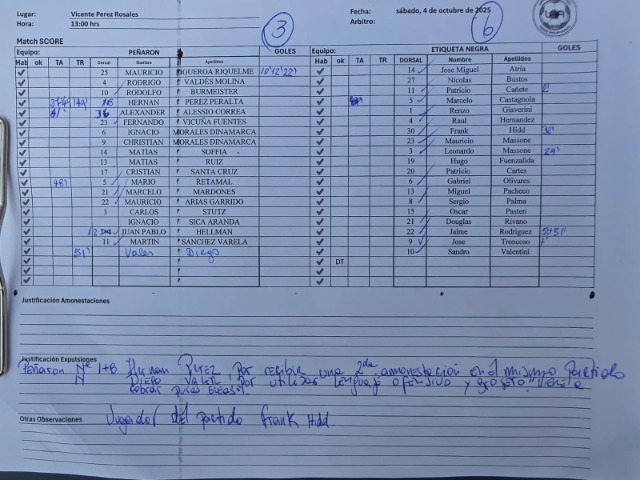 Lugar: Vicente Perez Rosales Fecha: sábado, 4 de octubre de 2025
Hora: 13:00 hrs Arbitro:
3 6
Match SCORE
Equipo: PEÑARON GOLES Equipo: ETIQUETA NEGRA GOLES
Hab ok TA TR Dorsal Nombre Apellidos Hab ok TA TR DORSAL Nombre Apellidos
25 MAURICIO FIGUEROA RIQUELME 14 Jose Miguel Atria
4 RODRIGO VALDÉS MOLINA 27 Nicolas Bustos
10 RODOLFO BURMEISTER 11 Patricio Cañete
HERNAN PEREZ PERALTA 5 Marcelo Castagnola
ALEXANDER ALESSIO CORREA 1 Renzo Giaverini
23 FERNANDO VICUÑA FUENTES 4 Raul Hernandez
6 IGNACIO MORALES DINAMARCA 30 Frank Hidd
9 CHRISTIAN MORALES DINAMARCA 23 Mauricio Massone
14 MATIAS SOFFIA 3 Leonardo Massone
13 MATIAS RUIZ 19 Hugo Fuenzalida
17 CRISTIAN SANTA CRUZ 20 Patricio Cartes
5 MARIO RETAMAL 6 Gabriel Olivares
21 MARCELO MARDONES 13 Miguel Pacheco
22 MAURICIO ARIAS GARRIDO 8 Sergio Palma
3 CARLOS STUTZ 15 Oscar Pasten
IGNACIO SICA ARANDA 21 Douglas Rivano
JUAN PABLO HELLMAN 22 Jaime Rodriguez
11 MARTIN SANCHEZ VARELA 9 Jose Troncoso
Diego 10 Sandro Valentini
DT
Justificación Amonestaciones
Justificación Expulsiones
Peñaron Nº Perez, Por recibir una 2da amonestacion en el mismo Partido
Diego por utilizar lenguaje ofensivo y grosero
Otras Observaciones
Jugador del partido Frank Hidd.